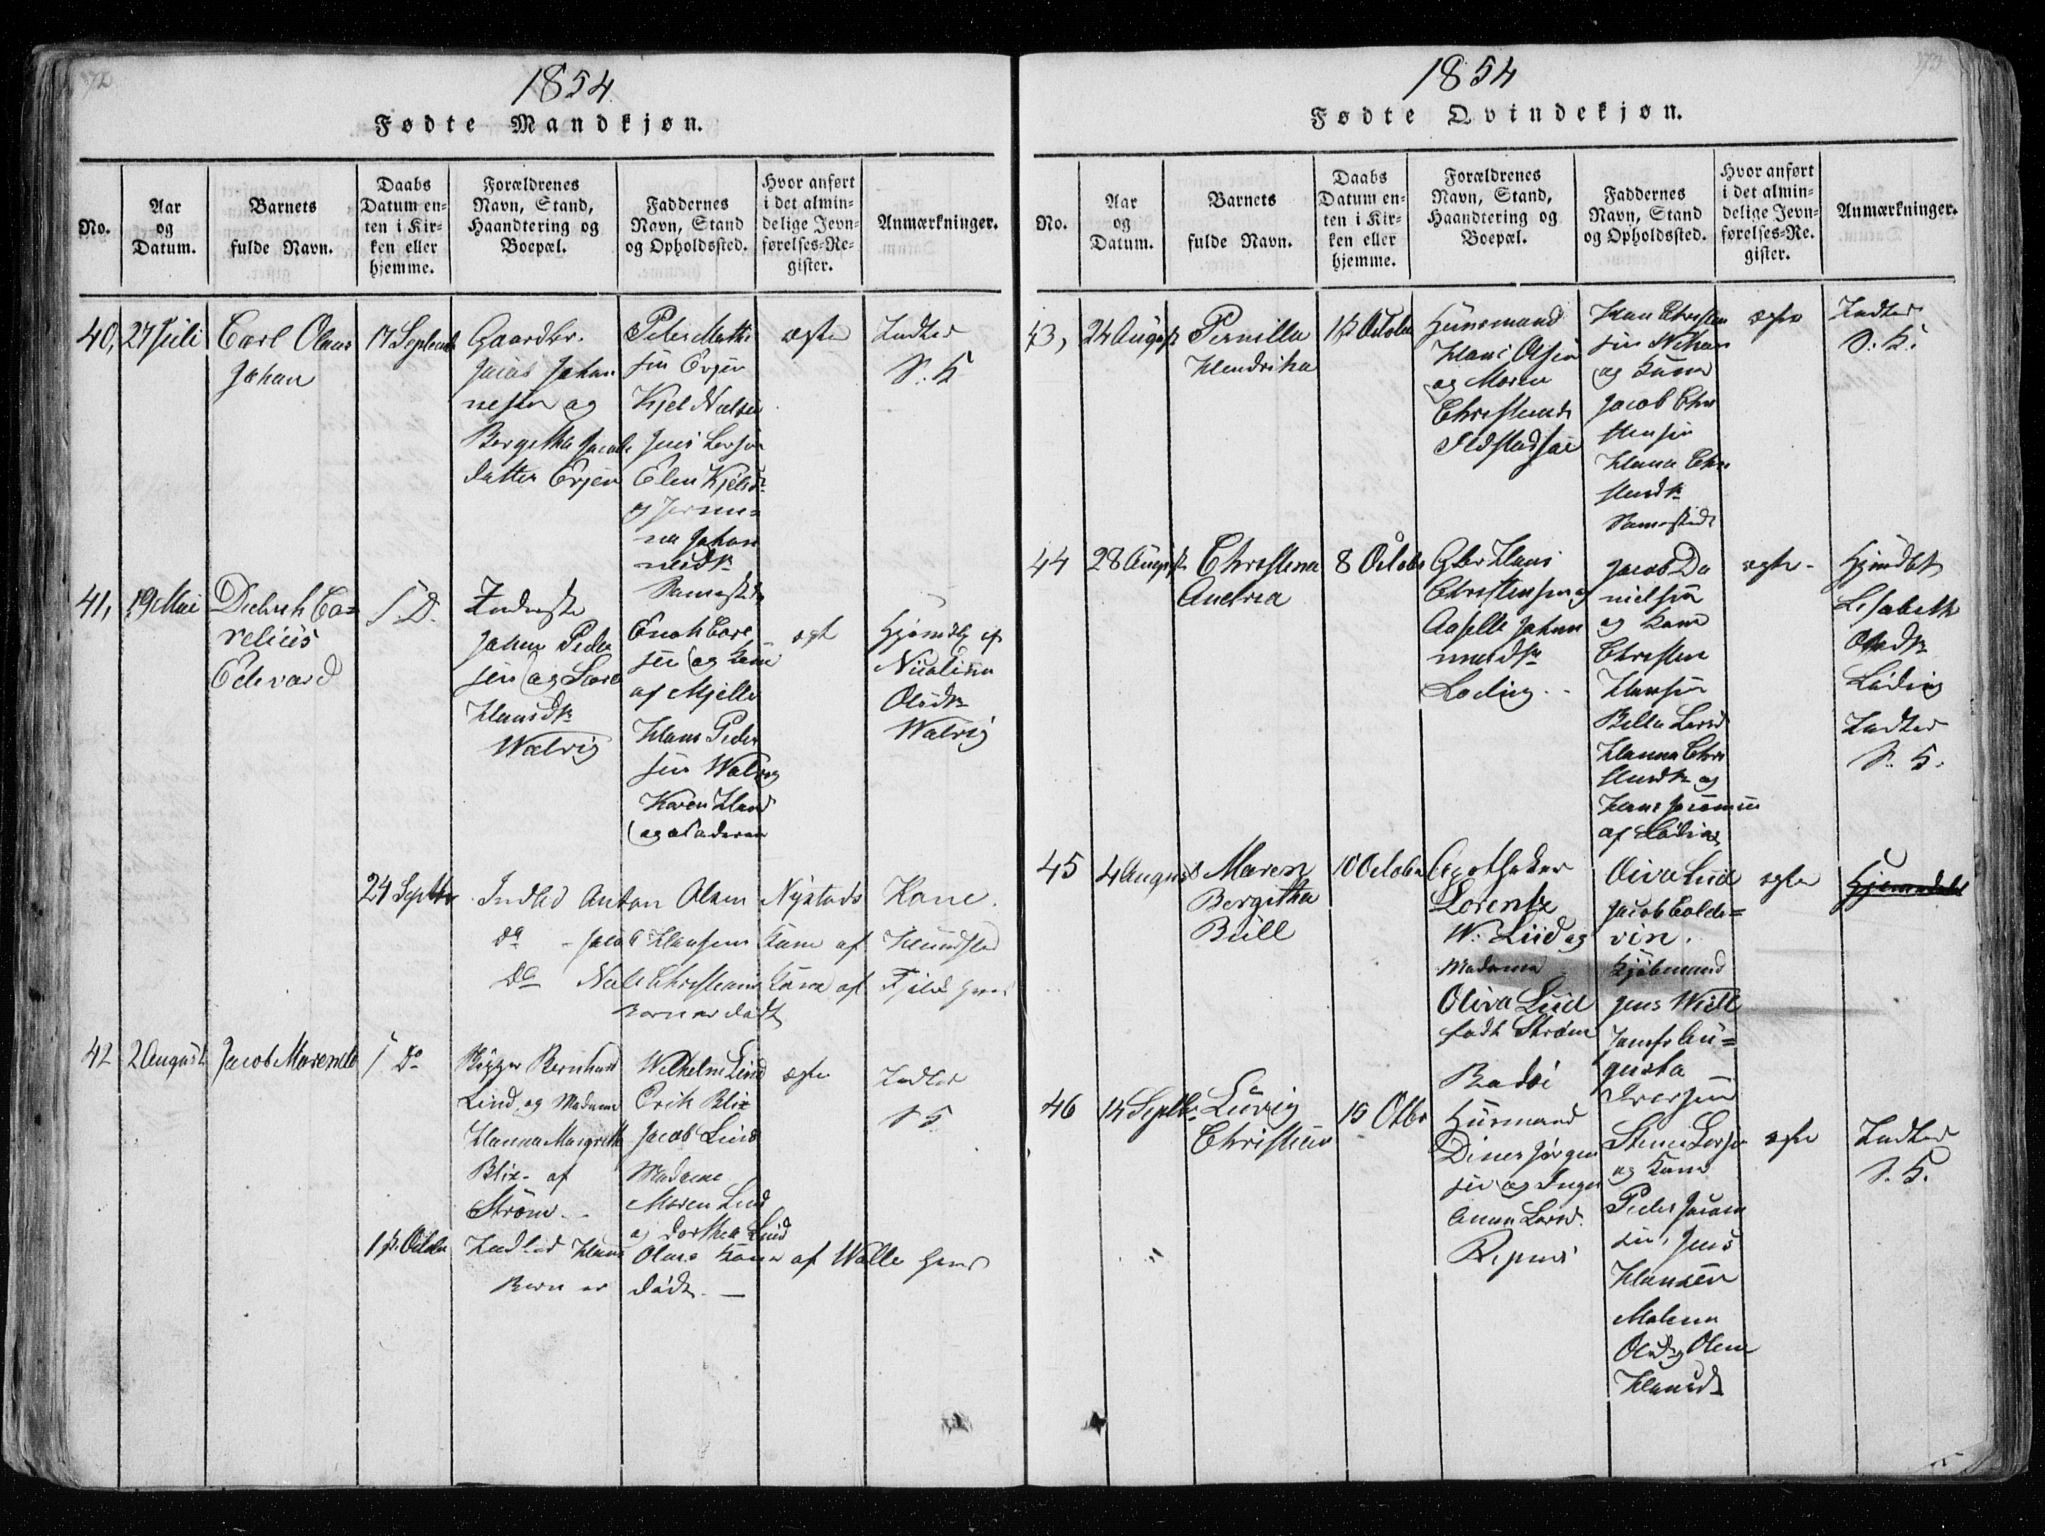 72
1854
Fødte Mandkjøn.
No.
Aar
og
Datum.
Barnets
fulde Navn.
Daabs
Datum en-
ten i Kir-
ken eller
hjemme.
Forældrenes
Navn, Stand,
Haandtering og
Boepæl.
Faddernes
Navn, Stand
og Opholdssted.
Hvor anført
i det almin-
delige Jevn-
førelses-Re-
gister.
Anmærkninger.
40,
27 Juli
Carl Olaus
Johan
17 Septembr
Gaardbr.
Jacob Johan
nesen og
Bergitha Jacobs
datter Evjen
Peter Mathi
sen Evjen
Kjel Nielsen
Jens Larsen
Elen Kjelsd
og
na Johan
nesd
ægte
Indter
S. 5
41,
19 Mai
Didrich Co-
relius
Edevard
S. D.
Inderste
Johan Peder
sen og Sara
Hansdtr
Walvig
Enoch Card
sen og Kone
af Mjelle
Hans Peder
sen Walvig
Karen Hansd
og
ægt
Hjemdbt af
Nicolina
Olsdtr
Walvig
24 Septbr
Indled Anton Olsen Nystads Kone.
do - Jacob Hansens Kone af Hundstad
Do Niels Christians Kone af Fjeld hendes
Barn er dødt
42
2 August
Jacob Marendo
S Do
Skipper Bernhard
Lind og Madame
Hanna Margreth
Blix af
Strøm.
Wilhelm Lind
Erik Blix
Jacob Lind
Madame
Maren Lind
og Dorthea Lind
ægte
Indter
S 5
1 Octbr
Indled Hans Olsens Kone af Walle hendes
Barn er dødt. —
73
1854
Fødte Qvindekjøn.
No.
Aar
og
Datum.
Barnets
fulde Navn.
Daabs
Datum en-
ten i Kir-
ken eller
hjemme.
Forældrenes
Navn, Stand,
Haandtering og
Boepæl.
Faddernes
Navn, Stand
og Opholdssted.
Hvor anført
i det almin-
delige Jevn-
førelses-Re-
gister.
Anmærkninger.
43,
24 August
Pernilla
Hendrika
1 October
Huusmand
Hans Olsen
og Maren
Christensd
Hans Christen
sen
og Kone
Jacob Chri
stensen
Hanna Chri
stensdtr
ægte
Indter
S. 5.
44
28 August
Christina
Andrea
8 October
Gbr Hans
Christensen og
Johan
nesdtr
Løding
Jacob Da
nielsen
og Kone
Christen
Hansen
Berta Larsd
Hanna Chri
stensdtr og
Hans
af Løding
ægte
Hjemdbt
Lisabeth
Olsdtr
Løding
Indter
S. 5.
45
4 August
Maren
Bergitha
Büll
10 October
Apotheker
Lorentz
W. Lüd og
Madame
Oliva Lüd
født Strøm
Bodø
Oliva Lüd
Jacob Colde-
vin.
Kjøbmand
Jens Wüll
Jomfr Au-
gusta
Iversen
ægte
Hjemdøbt
46
14 Septbr
Luvig
Christine
15 Octbr
Huusmand
Diner Jørgen
sen og Inger
Anna Larsd.
Stener Larsen
og Kone
Peder Jacob
sen, Jens
Hansen
Malena
Olsd og Olena
Hansdtr
ægte
Indter
S. 5.